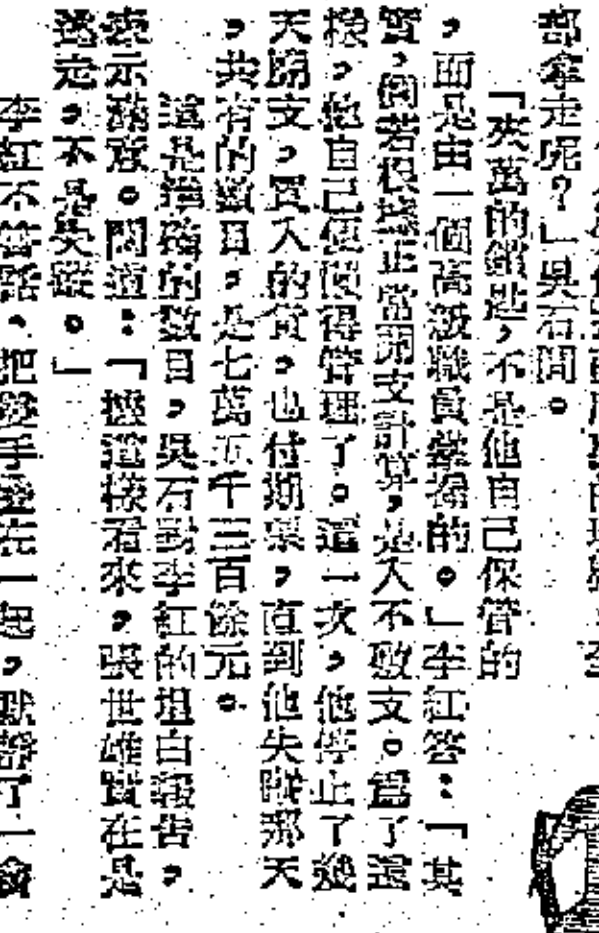 都拿走呢?」吳石問。
「夾萬的鎖匙,不是他自己保管的
,而是由一個高級職員掌握的。」李紅答:「其
實,倘若根據正常開支計算,是入不敷支。爲了這
樣,他自己便懶得管理了。這一次,他停止了幾
天開支,買入的貨,也付期票,直到他失蹤那天
,共有的數目,是七萬五千三百餘元。
這是準確的數目,吳石對李紅的坦白報告,
表示滿意。問道:「照這樣看來,張世雄實在是
逃走,不是失蹤。」
李紅不答話,把雙手叠在一起,默靜了一會